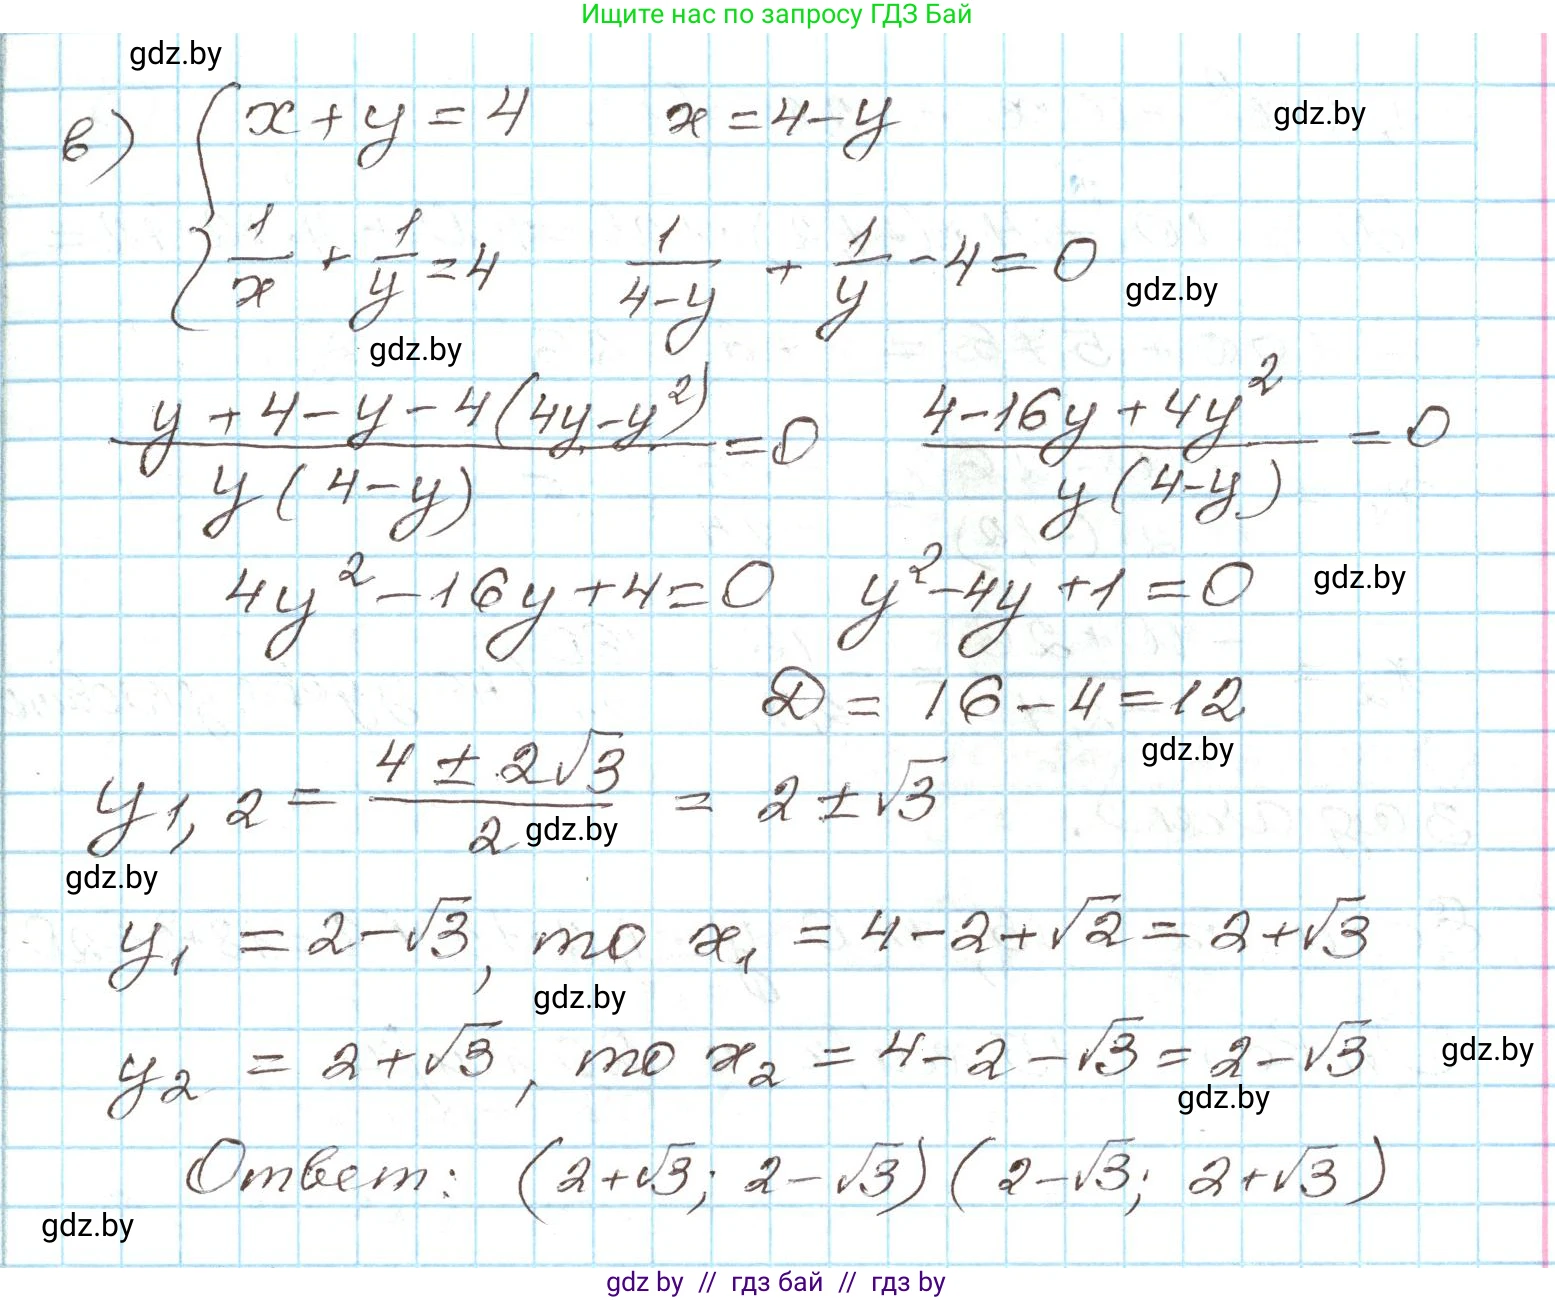 Ищите нас по запросу ГДЗ Бай
gdz.by
в) { x + y = 4    x = 4 - y
gdz.by
1/x + 1/y = 4    1/(4-y) + 1/y - 4 = 0
gdz.by
gdz.by
(y + 4 - y - 4(4y - y²))/(y(4-y)) = 0    (4 - 16y + 4y²)/(y(4-y)) = 0
4y² - 16y + 4 = 0    y² - 4y + 1 = 0
gdz.by
D = 16 - 4 = 12
gdz.by
y₁,₂ = (4 ± 2√3)/2 = 2 ± √3
gdz.by
gdz.by
y₁ = 2 - √3, то x₁ = 4 - 2 + √2 = 2 + √3
gdz.by
y₂ = 2 + √3, то x₂ = 4 - 2 - √3 = 2 - √3
gdz.by
gdz.by
Ответ: (2+√3; 2-√3) (2-√3; 2+√3)
gdz.by
gdz by // гдз бай // гдз by